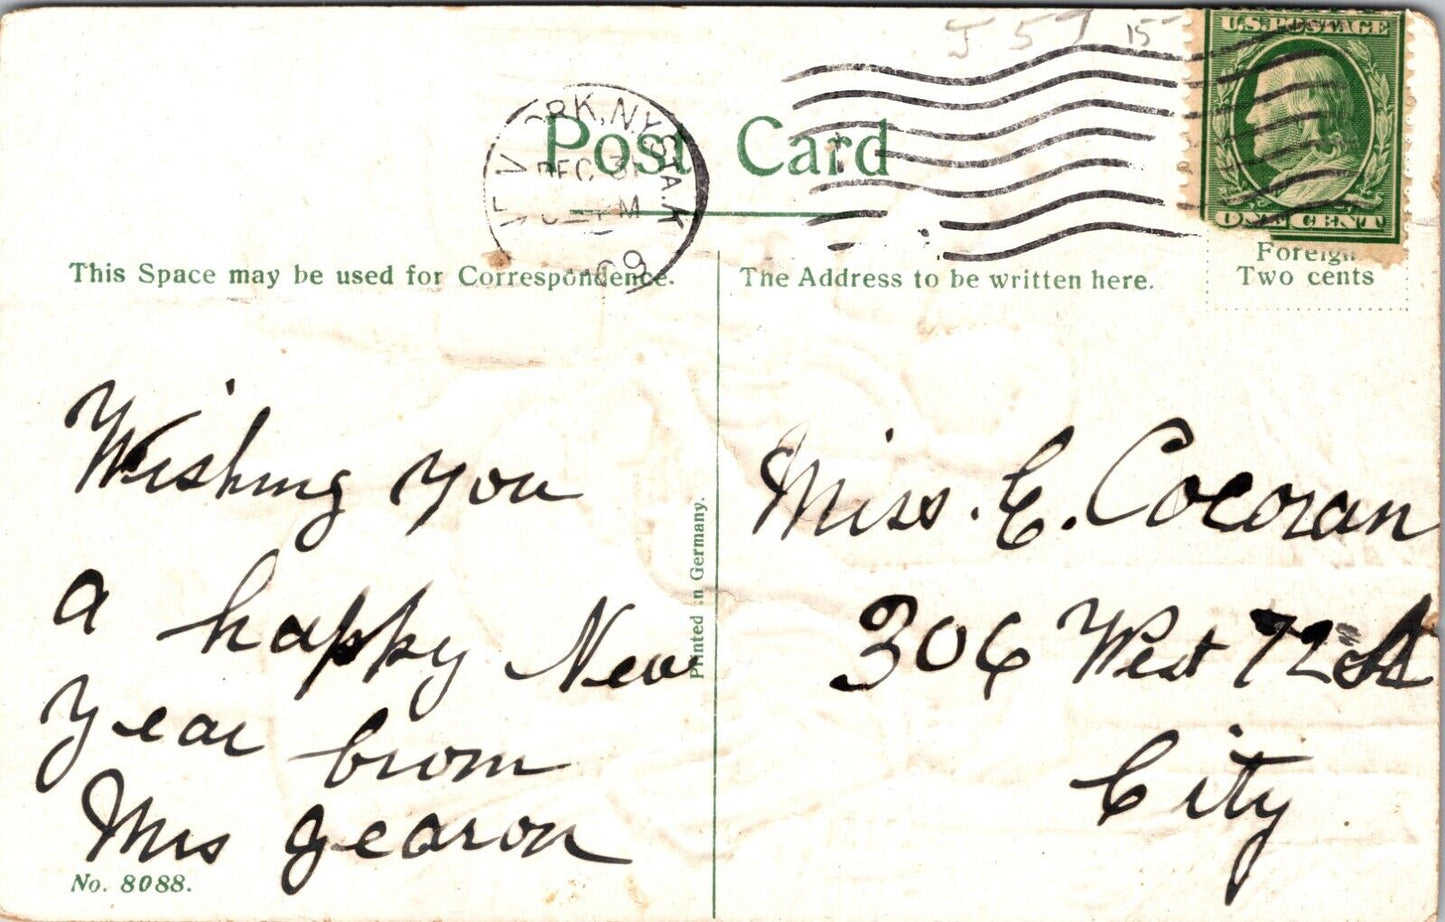 J 5 7 15
U.S. POSTAGE
ONE CENT
ORK, N.Y. STA. K
DEC 31
PM
09
Post Card
This Space may be used for Correspondence.
The Address to be written here.
Foreign
Two cents
Wishing you
a happy New
Year from
Mrs Gearon
No. 8088.
Printed in Germany.
Miss. C. Cocoran
306 West 72 St
City